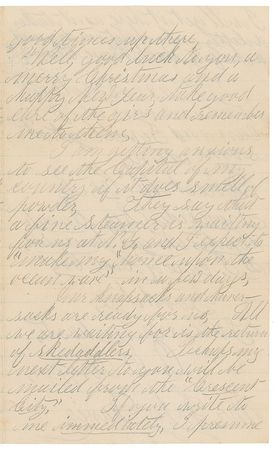 good times up there
Well good luck to you, a
merry Christmas and a
Happy New Year, take good
care of the girls and remember
me to them.
I am getting anxious
to see the Capital of my
country if it does smell of
powder. They say that
a fine steamer is waiting
for us at N. Y. and I expect to
"make my "home upon the
ocean wave" in a few days,
Our knapsacks and haver-
sacks are ready for us, All
we are waiting for is the return
of skedaddlers, Perhaps my
next letter to you will be
mailed from the "Crescent
City," If you write to
me immediately, I presume